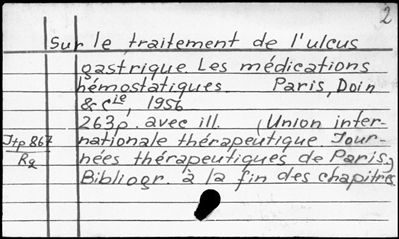 2
Sur le traitement de l'ulcus
gastrique. Les médications
hémostatiques. Paris, Doin
& Cie, 1956
263p. avec ill. (Union inter-
Itp 867 nationale thérapeutique. Jour-
Rg nées thérapeutiques de Paris.)
Bibliogr. à la fin des chapitres